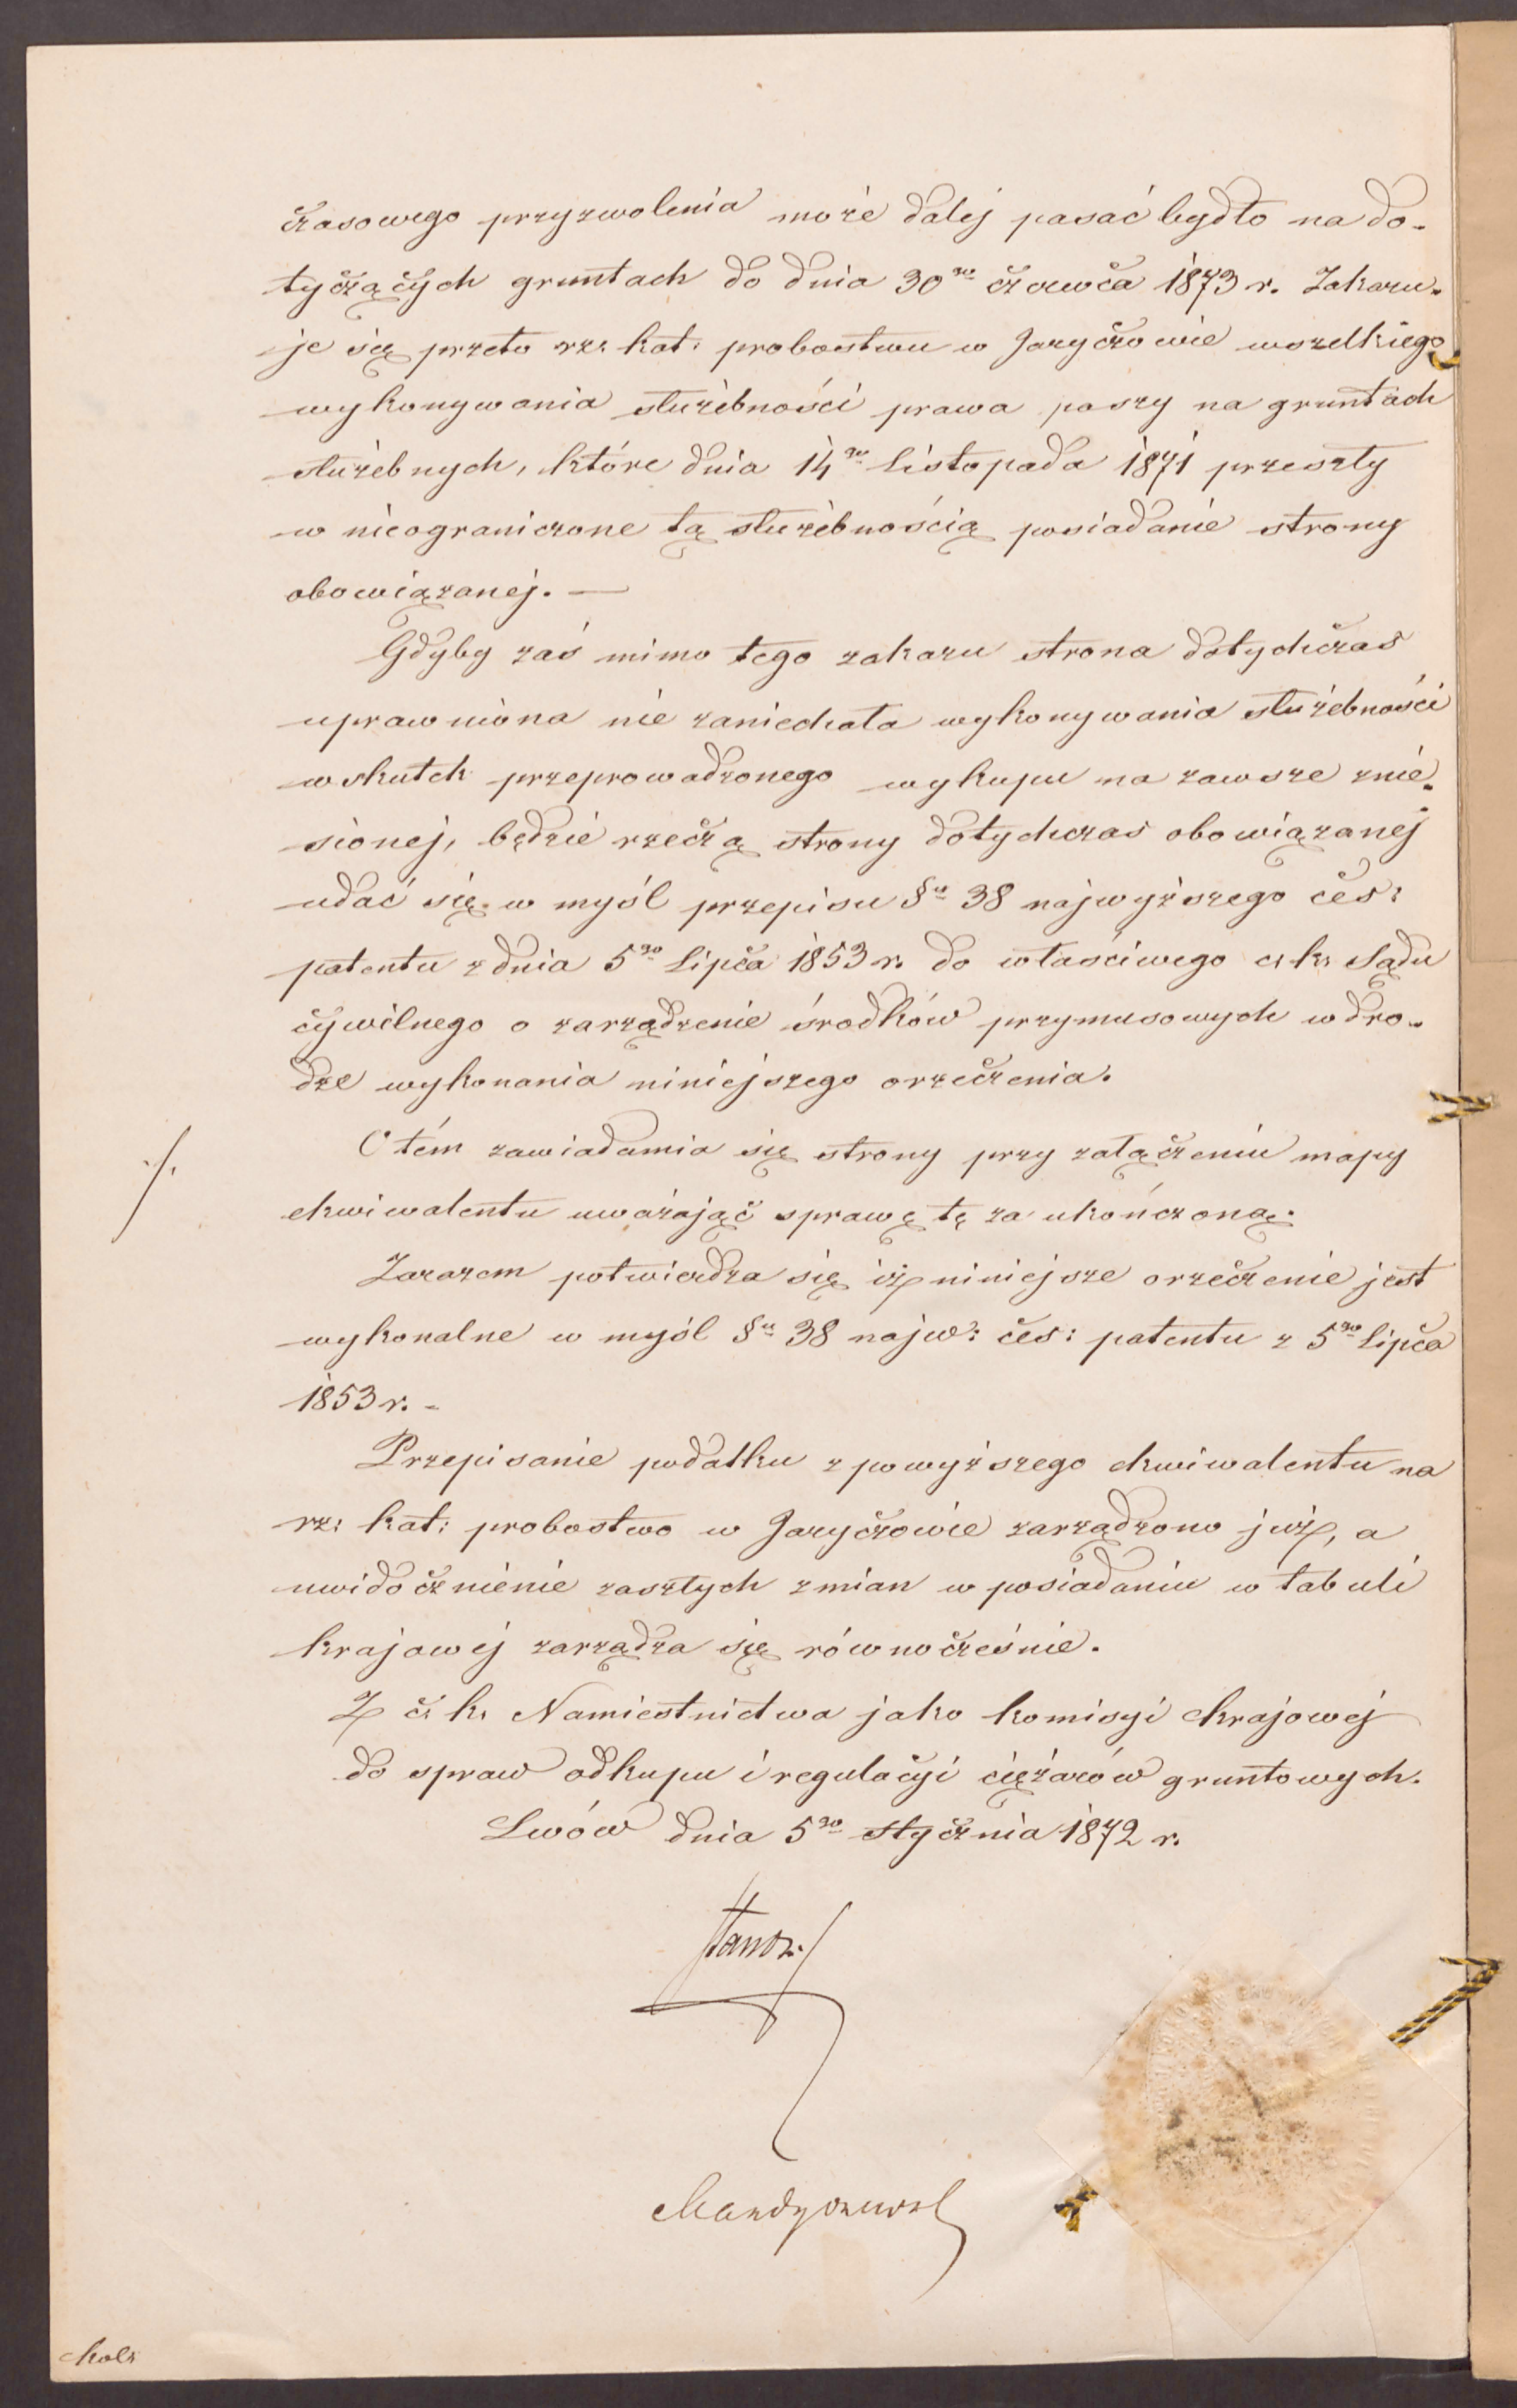 czasowego przyzwolenia może dalej pasać bydło na do-
tyczących gruntach do dnia 30go czerwca 1873 r. Zakazu-
je się przeto rz: kat: probostwu w Jaryczowie wszelkiego
wykonywania służebności prawa paszy na gruntach
służebnych, które dnia 14go Listopada 1871 przeszły
w nieograniczone tą służebnością posiadanie strony
obowiązanej. —
Gdyby zaś mimo tego zakazu strona dotychczas
uprawniona nie zaniechała wykonywania służebności
wskutek przeprowadzonego wykupu na zawsze znie-
sionej, będzie rzeczą strony dotychczas obowiązanej
udać się w myśl przepisu §u 38 najwyższego ces:
patentu z dnia 5go Lipca 1853 r. do właściwego c: k: Sądu
cywilnego o zarządzenie środków przymusowych w dro-
dze wykonania niniejszego orzeczenia.
./. O tém zawiadamia się strony przy załączeniu mapy
ekwiwalentu uważając sprawę tę za ukończoną.
Zarazem potwierdza się iż niniejsze orzeczenie jest
wykonalne w myśl §u 38 najw: ces: patentu z 5go Lipca
1853 r. -
Przepisanie podatku z powyższego ekwiwalentu na
rz: kat: probostwo w Jaryczowie zarządzono już, a
uwidocznienie zaszłych zmian w posiadaniu w tabuli
krajowej zarządza się równocześnie.
Z c: k: Namiestnictwa jako komisyi krajowej
do spraw odkupu i regulacyi ciężarów gruntowych.
Lwów dnia 5go stycznia 1872 r.